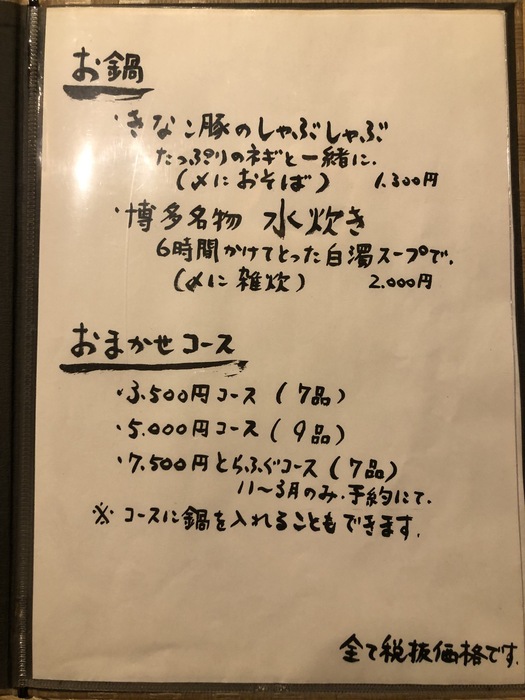 お鍋
・きなこ豚のしゃぶしゃぶ
たっぷりのネギと一緒に.
(〆におそば) 1.300円
・博多名物 水炊き
6時間かけてとった白濁スープで.
(〆に雑炊) 2.000円
おまかせコース
・3.500円コース (7品)
・5.000円コース (9品)
・7.500円とらふぐコース (7品)
11〜3月のみ・予約にて.
※ コースに鍋を入れることもできます.
全て税抜価格です.